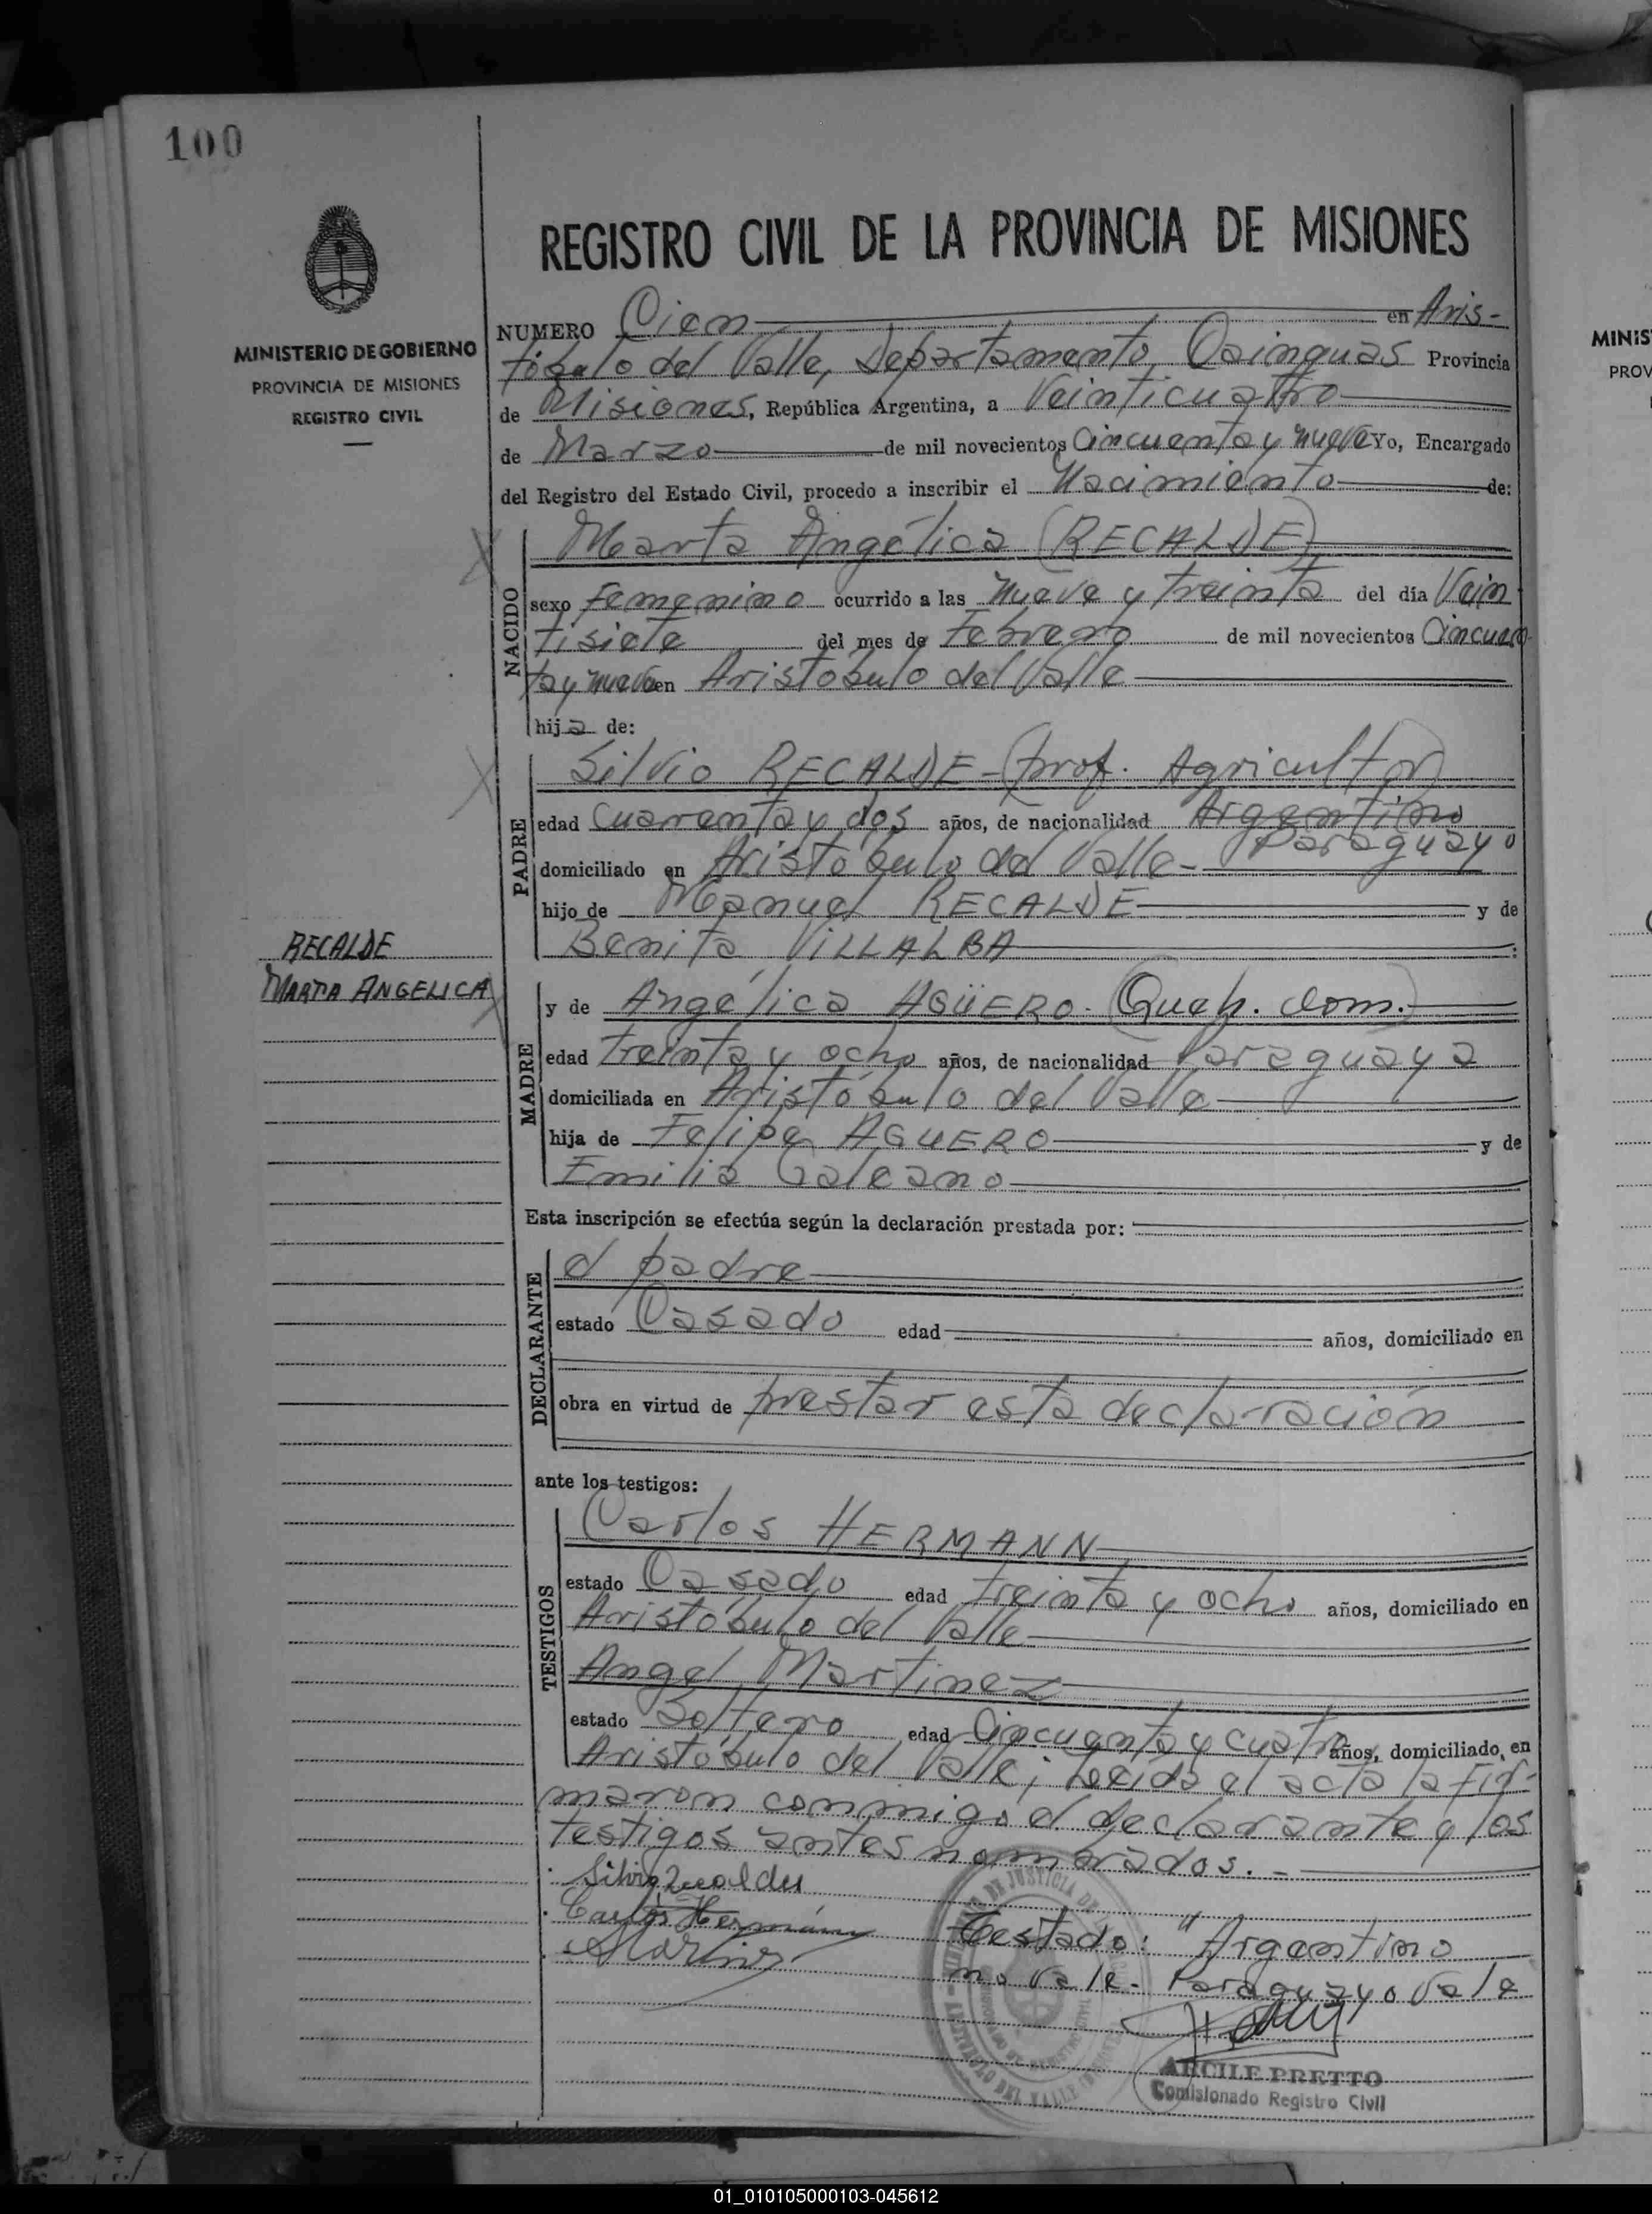 100
MINISTERIO DE GOBIERNO
PROVINCIA DE MISIONES
REGISTRO CIVIL
REGISTRO CIVIL DE LA PROVINCIA DE MISIONES
NUMERO Cien en Aris-
tóbulo del Valle, Departamento Cainguas Provincia
de Misiones, República Argentina, a Veinticuatro
de Marzo de mil novecientos Cincuenta y nueve Yo, Encargado
del Registro del Estado Civil, procedo a inscribir el Nacimiento de:
NACIDO
Marta Angélica (RECALDE)
sexo Femenino ocurrido a las nueve y treinta del día Vein
tisiete del mes de Febrero de mil novecientos Cincuen
ta y nueve en Aristóbulo del Valle
hija de:
PADRE
Silvio RECALDE - (prof. Agricultor)
edad Cuarenta y dos años, de nacionalidad Argentino
Paraguayo
domiciliado en Aristóbulo del Valle-
hijo de Manuel RECALDE y de
Benita VILLALBA :
RECALDE
MARTA ANGELICA
MADRE
y de Angélica AGÜERO. (Queh. dom.)
edad treinta y ocho años, de nacionalidad Paraguaya
domiciliada en Aristóbulo del Valle
hija de Felipe AGUERO y de
Emilia Galeano
Esta inscripción se efectúa según la declaración prestada por:
DECLARANTE
el padre
estado Casado edad años, domiciliado en
obra en virtud de prestar esta declaración
ante los testigos:
TESTIGOS
Carlos HERMANN
estado Casado edad treinta y ocho años, domiciliado en
Aristóbulo del Valle
Angel Martinez
estado Soltero edad Cincuenta y cuatro años, domiciliado en
Aristóbulo del Valle; Leída el acta la fir-
maron conmigo el declarante y los
testigos antes nombrados.-
Silvio Recalde
Carlos Hermann
Testado: "Argentino
no vale- Paraguayo Vale
DE JUSTICIA
DEL VALLE
ARCILE PRETTO
Comisionado Registro Civil
MINIS
PROV
01_010105000103-045612